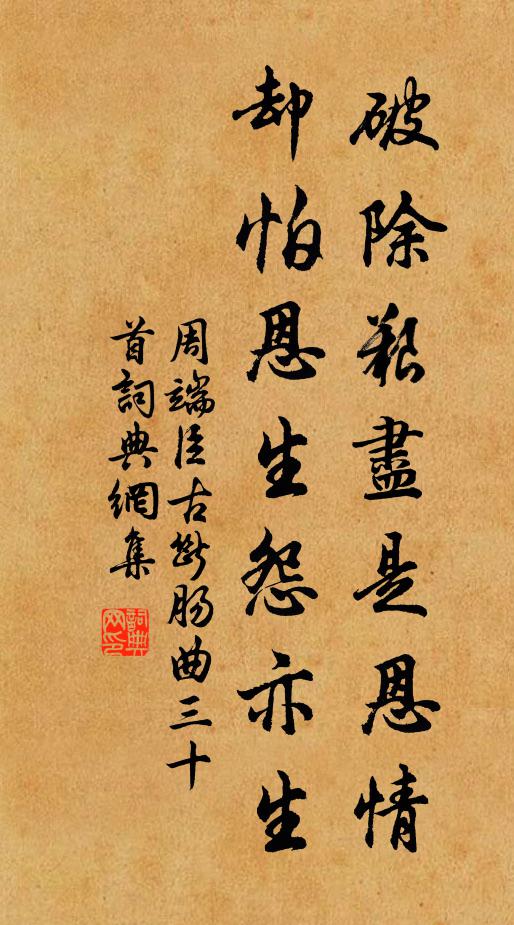 破除艱盡是恩情
却怕恩生怨亦生
周端臣古斷腸曲三十
首詞典網集
詞典
网印